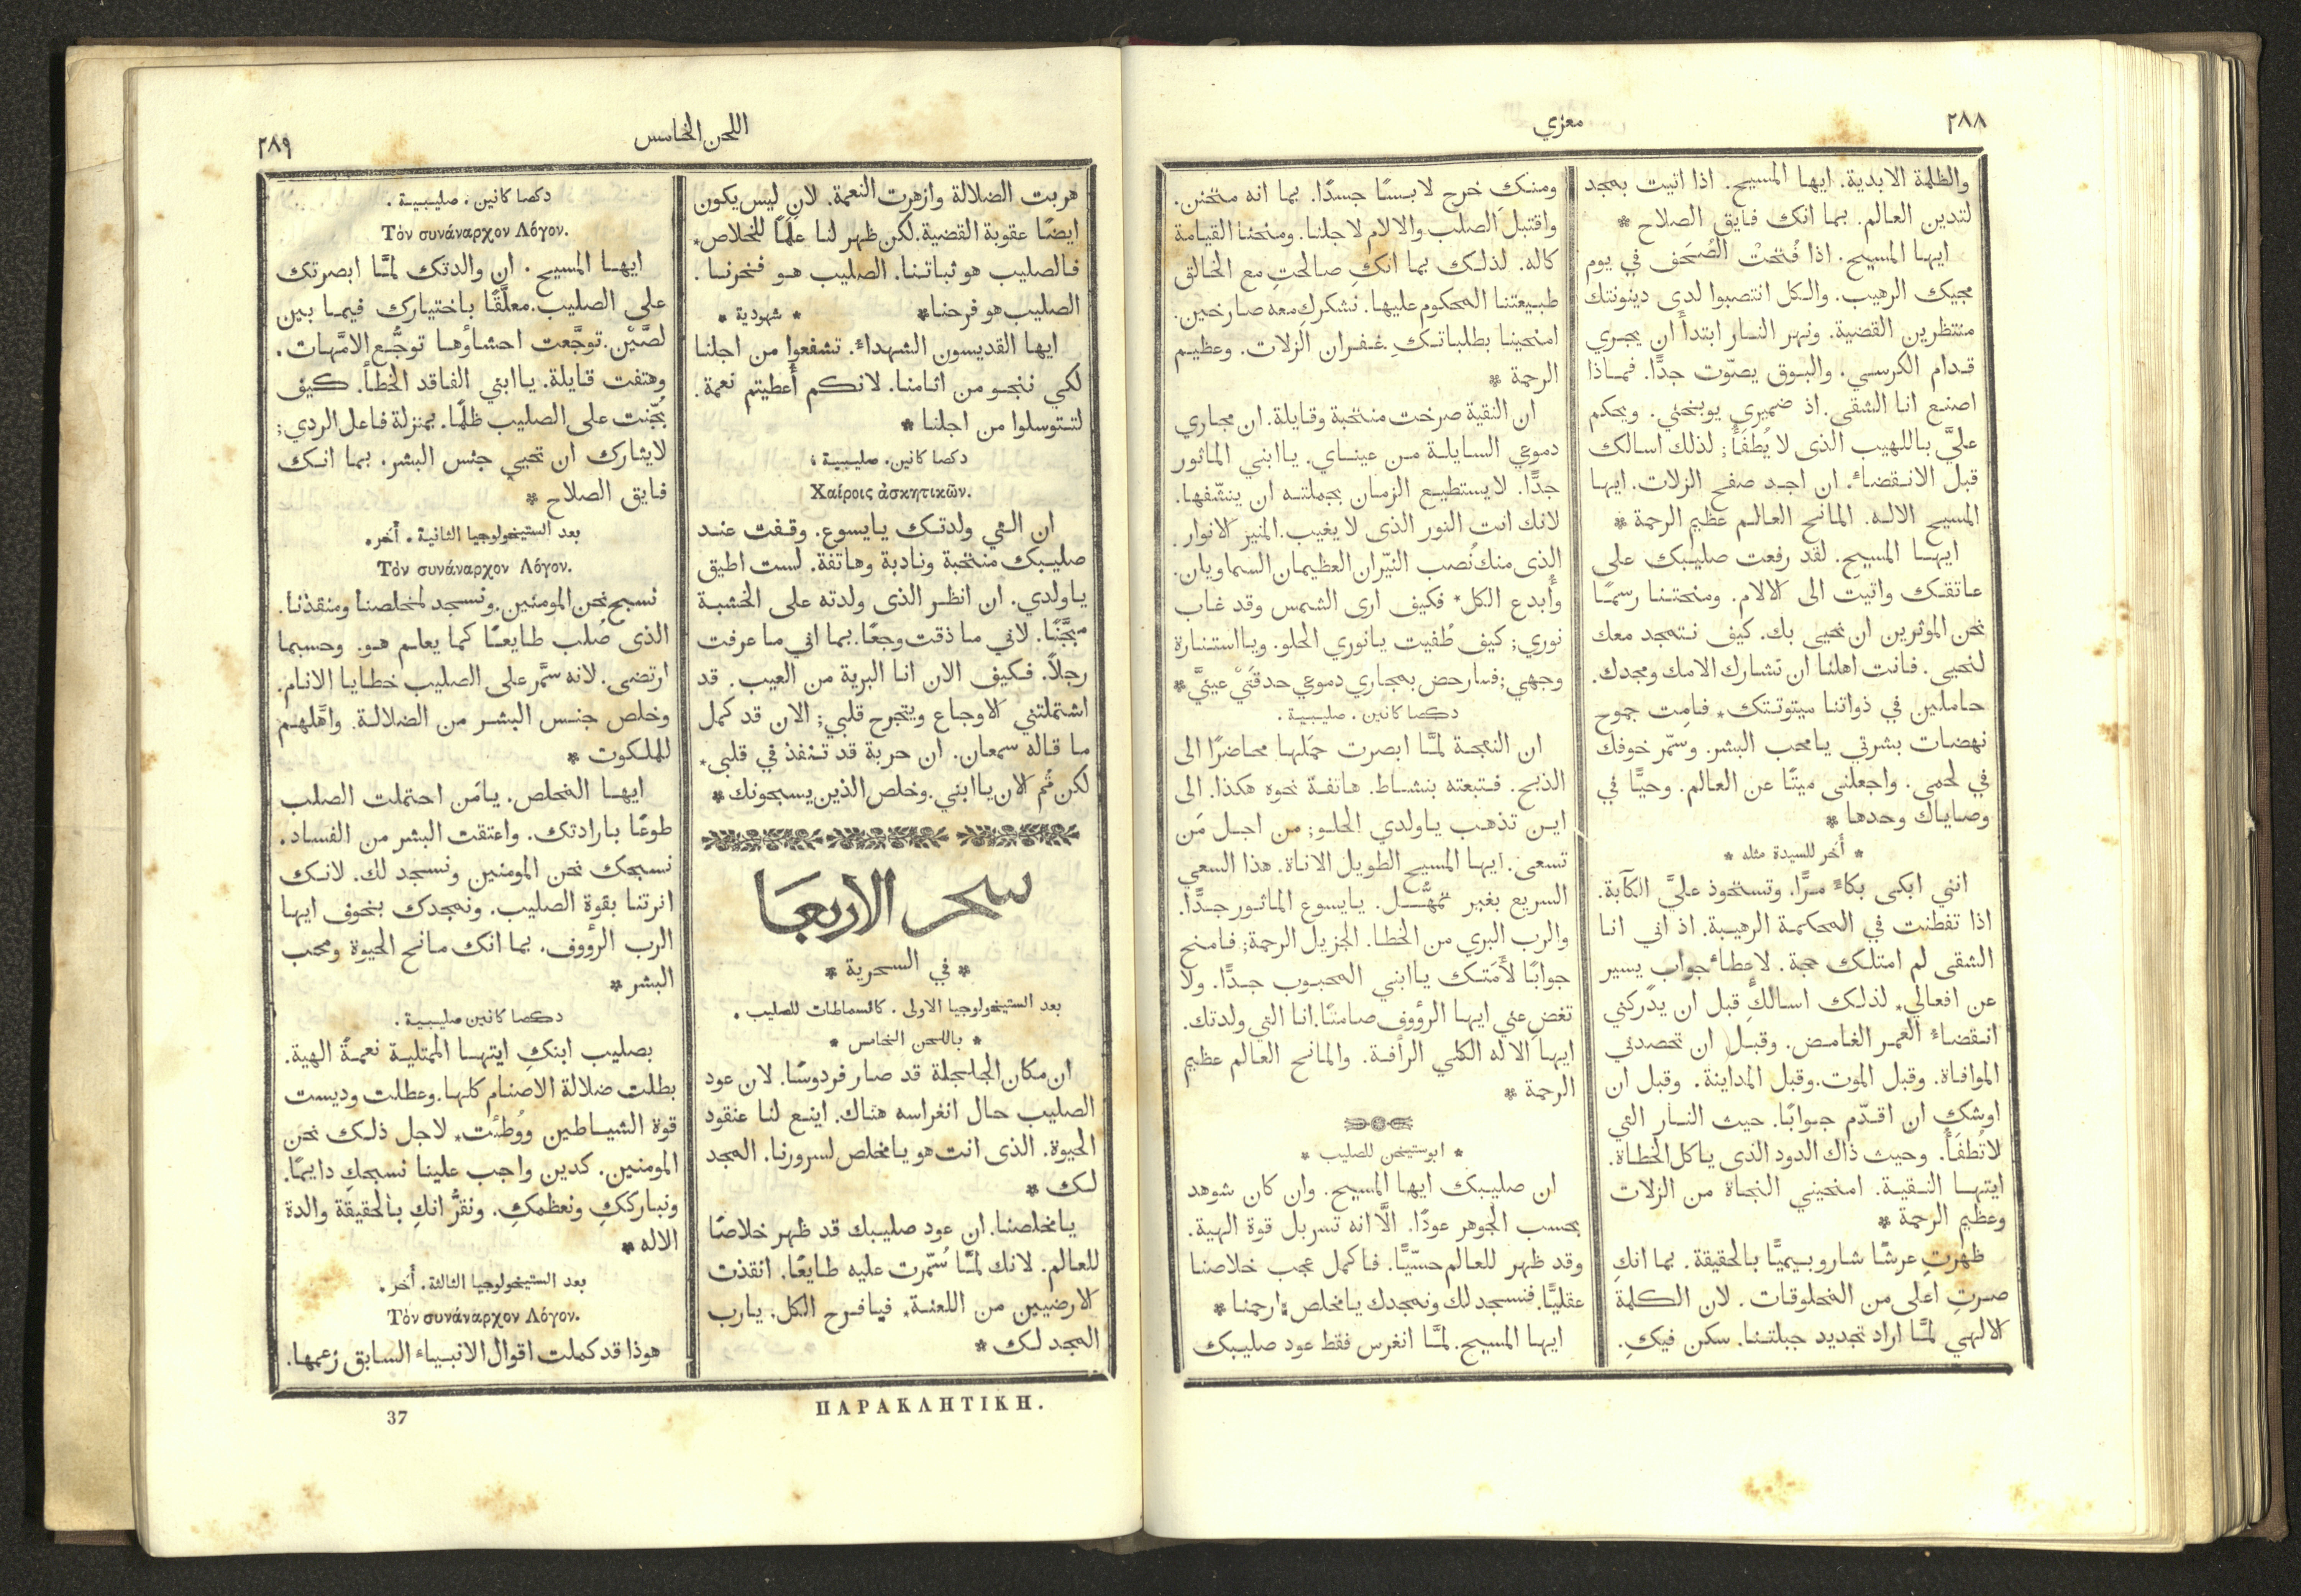 ٢٨٨
معزي
والظلمة الابدية. ايها المسيح. اذا اتيت بمجد
لتدين العالم. بما انك فايق الصلاح *
ايها المسيح. اذا فُتحَتْ الصُحَف في يوم
مجيك الرهيب. والكل انتصبوا لدى دينونتك
منتظرين القضية. ونهر النار ابتدأَ ان يجري
قدام الكرسي. والبوق يصوّت جدًّا. فماذا
اصنع انا الشقى. اذ ضميرى يوبخني. ويحكم
عليَّ باللهيب الذى لا يُطفَأُ; لذلك اسالك
قبل الانقضاء. ان اجد صفح الزلات. ايها
المسيح الاله. المانح العالم عظيم الرحمة *
ايها المسيح. لقد رفعت صليبك على
عاتقك واتيت الى الالام. ومنحتنا رسمًا
نحن الموثرين ان نحيى بك. كيف نتمجد معك
لنحيى. فانت اهلنا ان نشارك الامك ومجدك.
حاملين في ذواتنا ميتوتتك * فامِت جموح
نهضات بشرتي يامحب البشر. وسمّر خوفك
في لحمى. واجعلنى ميتًا عن العالم. وحيًّا في
وصاياك وحدها *
* أُخر للسيدة مثله *
انني ابكى بكاءً مرًّا. وتستحوذ عليَّ الكآبة.
اذا تفطنت في المحكمة الرهيبة. اذ اني انا
الشقى لم امتلك حجة. لاعطاء جواب يسير
عن افعالي * لذلك اسالكِ قبل ان يدركني
انقضاء العمر الغامض. وقبل ان تحصدني
الموافاة. وقبل الموت. وقبل المداينة. وقبل ان
اوشك ان اقدّم جوابًا. حيث النار التي
لاتُطفَأُ. وحيث ذاك الدود الذى ياكل الخطاة.
ايتها النقية. امنحيني النجاة من الزلات
وعظيم الرحمة *
ظهرتِ عرشًا شاروبيميًّا بالحقيقة. بما انكِ
صرتِ اعلى من المخلوقات. لان الكلمة
الالهي لمَّا اراد تجديد جبلتنا. سكن فيكِ.
ومنك خرج لابسًا جسدًا. بما انه متحنن.
واقتبل الصلب والالام لاجلنا. ومنحنا القيامة
كاله. لذلك بما انكِ صالحتِ مع الخالق
طبيعتنا المحكوم عليها. نشكركِ معه صارخين.
امنحينا بطلباتكِ غفران الزلات. وعظيم
الرحمة *
ان النقية صرخت منتحبة وقايلة. ان مجاري
دموعي السايلة من عيناي. ياابني الماثور
جدًّا. لايستطيع الزمان بجملته ان ينشّفها.
لانك انت النور الذى لا يغيب. المنير الانوار.
الذى منك نُصب النيّران العظيمان السماويان.
وأُبدع الكل * فكيف ارى الشمس وقد غاب
نوري; كيف طُفيت يانوري الحلو. وياانستنارة
وجهي; فسارحض بمجاري دموعي حدقَتَيْ عينيَّ *
دكصا كانين. صليبية.
ان النعجة لمَّا ابصرت حمَلها محاضرًا الى
الذبح. فتبعته بنشاط. هاتفةً نحوه هكذا. الى
اين تذهب ياولدي الحلو; من اجل مَن
تسعى. ايها المسيح الطويل الاناة. هذا السعي
السريع بغير تمهُّل. يايسوع الماثور جدًّا.
والرب البري من الخطا. الجزيل الرحمة; فامنح
جوابًا لأَمَتك ياابني المحبوب جدًّا. ولا
تغض عني ايها الرؤوف صامتًا. انا التي ولدتك.
ايها الاله الكلي الرأفة. والمانح العالم عظيم
الرحمة *
* ابوستيخن للصليب *
ان صليبك ايها المسيح. وان كان شوهد
بحسب الجوهر عودًا. الَّا انه تسربل قوة الهية.
وقد ظهر للعالم حسّيًّا. فاكمل عجب خلاصنا
عقليًّا. فنسجد لك ونمجدك يامخلص; ارحمنا *
ايها المسيح. لمَّا انغرس فقط عود صليبك
اللحن الخامس
٢٨٩
هربت الضلالة وازهرت النعمة. لان ليس يكون
ايضًا عقوبة القضية. لكن ظهر لنا علمًا للخلاص *
فالصليب هو ثباتنا. الصليب هو فخرنا.
الصليب هو فرحنا * * شهودية *
ايها القديسون الشهداء. تشفعوا من اجلنا
لكي ننجو من اثامنا. لانكم أُعطيتم نعمة.
لتتوسلوا من اجلنا *
دكصا كانين. صليبية;
Χαίροις ἀσκητικῶν.
ان التي ولدتك يايسوع. وقفت عند
صليبك منتحبة ونادبة وهاتفة. لست اطيق
ياولدي. ان انظر الذى ولدته على الخشبة
مجَنَّبًا. لاني ما ذقت وجعًا. بما اني ما عرفت
رجلًا. فكيف الان انا البرية من العيب. قد
اشتملتني الاوجاع ويتجرح قلبي; الان قد كمل
ما قاله سمعان. ان حربة قد تنفذ في قلبي *
لكن قُم الان ياابني. وخلص الذين يسبحونك *
سحر الاربعا
* في السحرية *
بعد الستيخولوجيا الاولى. كاثسماطات للصليب.
* باللحن الخامس *
ان مكان الجلجلة قد صار فردوسًا. لان عود
الصليب حال انغراسه هناك. اينع لنا عنقود
الحيوة. الذى انت هو يامخلص لسرورنا. المجد
لك *
يامخلصنا. ان عود صليبك قد ظهر خلاصًا
للعالم. لانك لمَّا سُمّرت عليه طايعًا. انقذت
الارضيين من اللعنة * فيافرح الكل. يارب
المجد لك *
دكصا كانين. صليبية.
Τὸν συνάναρχον Λόγον.
ايها المسيح. ان والدتك لمَّا ابصرتك
على الصليب. معلَّقًا باختيارك فيما بين
لصَّيْن. توجَّعت احشاؤها توجُّع الامَّهات.
وهتفت قايلة. ياابني الفاقد الخطأ. كيف
جُنّبت على الصليب ظلمًا. بمنزلة فاعل الردي;
لايثارك ان تحيي جنس البشر. بما انك
فايق الصلاح *
بعد الستيخولوجيا الثانية. أُخر.
Τὸν συνάναρχον Λόγον.
نسبح نحن المومنين. ونسجد لمخلصنا ومنقذنا.
الذى صُلب طايعًا كما يعلم هو. وحسبما
ارتضى. لانه سمَّر على الصليب خطايا الانام.
وخلص جنس البشر من الضلالة. واهَّلهم
للملكوت *
ايها المخلص. يامَن احتملت الصلب
طوعًا بارادتك. واعتقت البشر من الفساد.
نسبحك نحن المومنين ونسجد لك. لانك
انرتنا بقوة الصليب. ونمجدك بخوف ايها
الرب الرؤوف. بما انك مانح الحيوة ومحب
البشر *
دكصا كانين صليبية.
بصليب ابنكِ ايتها الممتلية نعمةً الهية.
بطلت ضلالة الاصنام كلها. وعطلت وديست
قوة الشياطين ووُطئت * لاجل ذلك نحن
المومنين. كدين واجب علينا نسبحكِ دايمًا.
ونبارككِ ونعظمكِ. ونقرُّ انكِ بالحقيقة والدة
الاله *
بعد الستيخولوجيا الثالثة. أُخر.
Τὸν συνάναρχον Λόγον.
هوذا قد كملت اقوال الانبياء السابق زعمها.
ΠΑΡΑΚΛΗΤΙΚΗ.
37